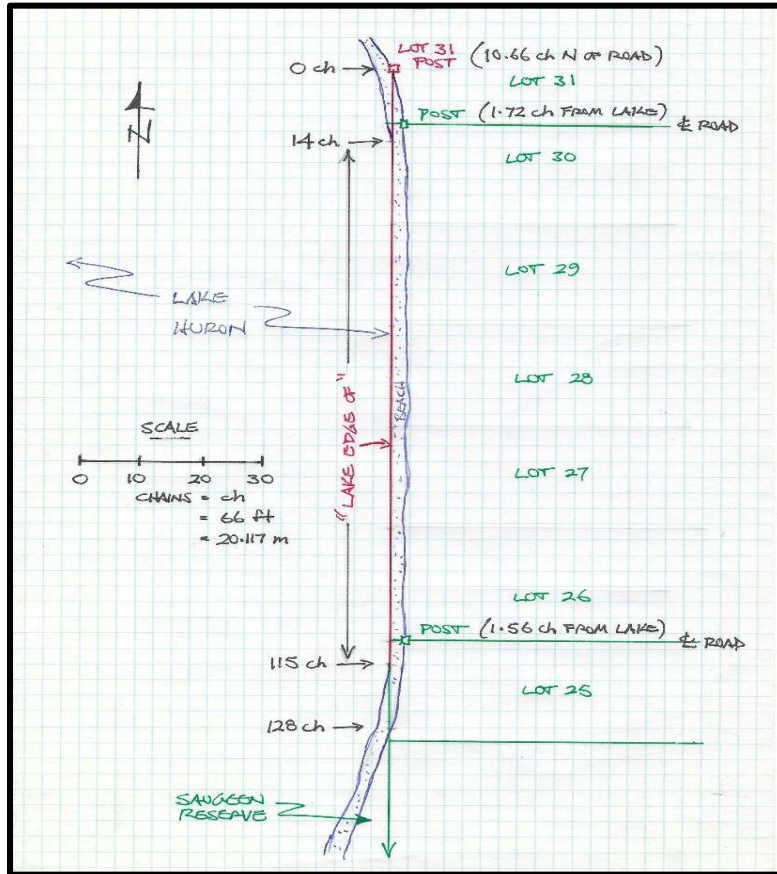 LOT 31
POST (10.66 ch N OF ROAD)
0 ch
LOT 31
POST (1.72 ch FROM LAKE) ℄ ROAD
N
14 ch
LOT 30
LOT 29
LAKE
HURON
LOT 28
BEACH
"LAKE EDGE OF"
SCALE
0 10 20 30
CHAINS = ch
= 66 ft
= 20.117 m
LOT 27
LOT 26
POST (1.56 ch FROM LAKE) ℄ ROAD
115 ch
LOT 25
128 ch
SAUGEEN
RESERVE